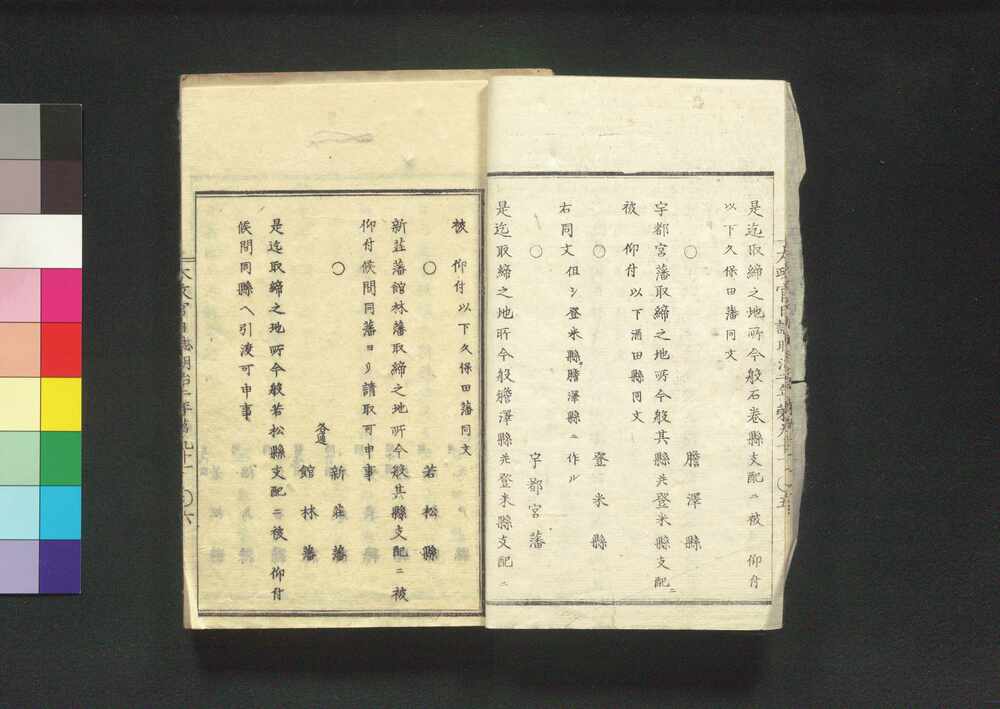 是迄取締之地所今般石卷縣支配ニ被　仰付
以下久保田藩同文
○　膽澤縣
宇都宮藩取締之地所今般其縣共登米縣支配ニ
被　仰付以下酒田縣同文
○　登米縣
右同文但シ登米縣膽澤縣ニ作ル
○　宇都宮藩
是迄取締之地所今般膽澤縣共登米縣支配ニ
被　仰付以下久保田藩同文
○　若松縣
新莊藩館林藩取締之地所今般其縣支配ニ被
仰付候間同藩ヨリ請取可申事
○　各通　新莊藩
館林藩
是迄取締之地所今般若松縣支配ニ被　仰付
候間同縣ヘ引渡可申事